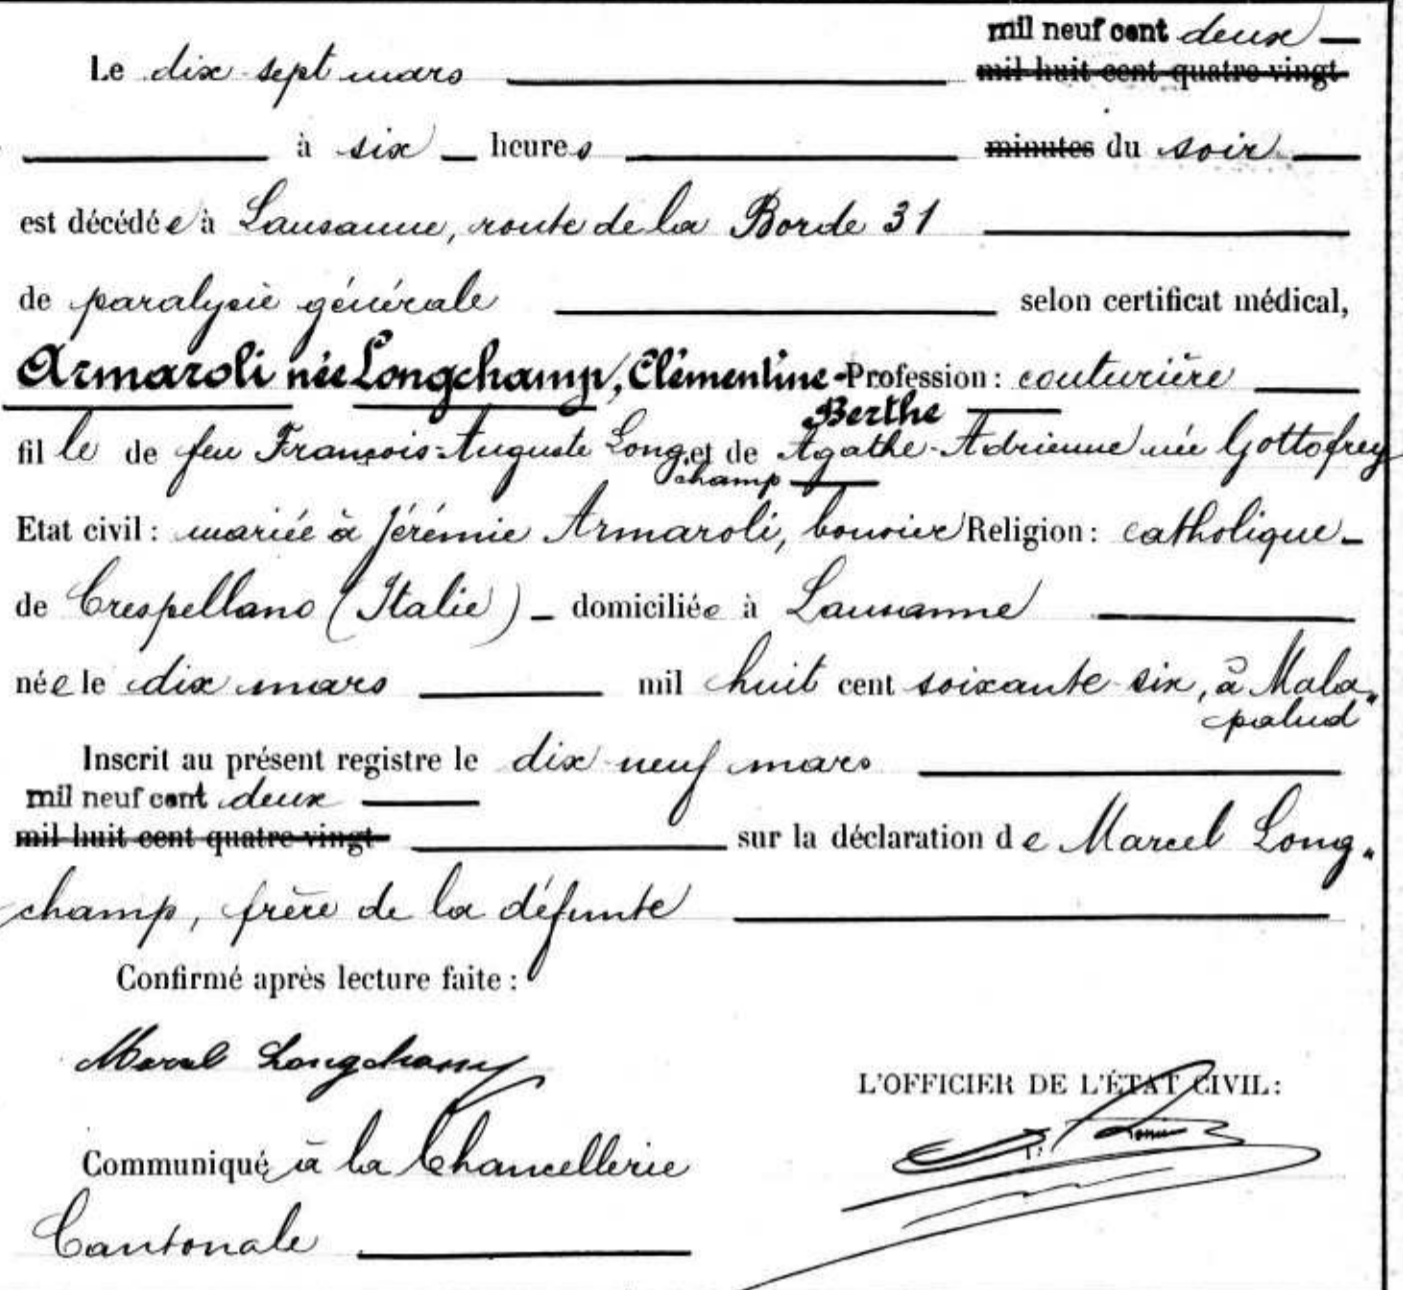 mil neuf cent deux
Le dix-sept mars mil huit cent quatre-vingt
à six heures minutes du soir
est décédée à Lausanne, route de la Borde 31
de paralysie générale selon certificat médical,
Armaroli née Longchamp, Clémentine- Profession: couturière
Berthe
fille de feu François-Auguste Long et de Agathe-Adrienne née Gottofrey
champ
Etat civil: mariée à Jérémie Armaroli, Religion: catholique
de Crespellano (Italie) domiciliée à Lausanne
née le dix mars mil huit cent soixante-six, à Mala„
palud
Inscrit au présent registre le dix-neuf mars
mil neuf cent deux
mil huit cent quatre-vingt sur la déclaration de Marcel Long„
champ, frère de la défunte
Confirmé après lecture faite:
Marcel Longchamp
L'OFFICIER DE L'ÉTAT CIVIL:
Communiqué à la Chancellerie
Cantonale